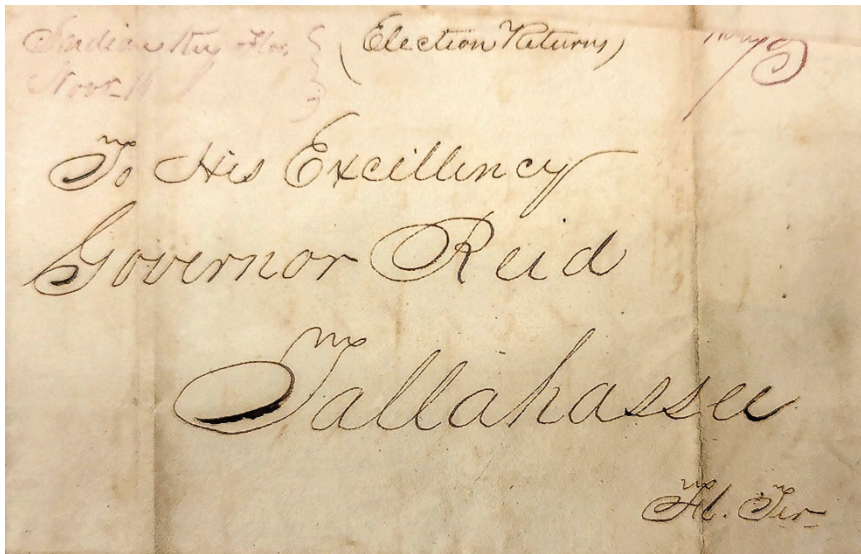 Indian Key Flor. (Election Returns)
Novr. 11
To His Excillency
Governor Reid
Tallahassee
Fl. Ter